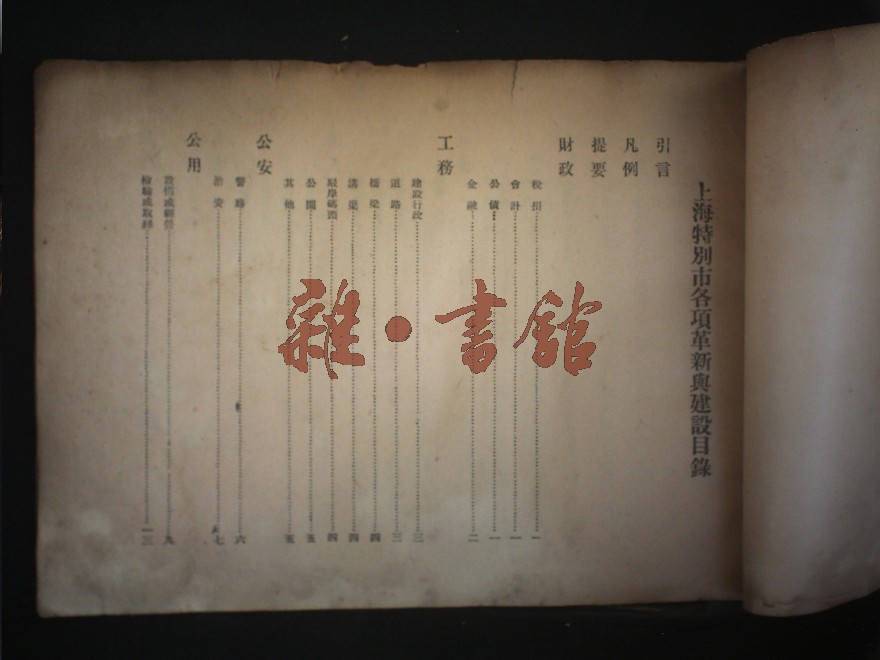 上海特別市各項革新與建設目錄
引言
凡例
提要
財政
稅捐 一
會計 一
公債 一
金融 二
工務
建設行政 三
道路 三
橋梁 四
溝渠 四
駁岸碼頭 四
公園 五
其他 五
公安
警務 六
治安 七
公用
設備或經營 九
檢驗或取締 一三
雜·書館